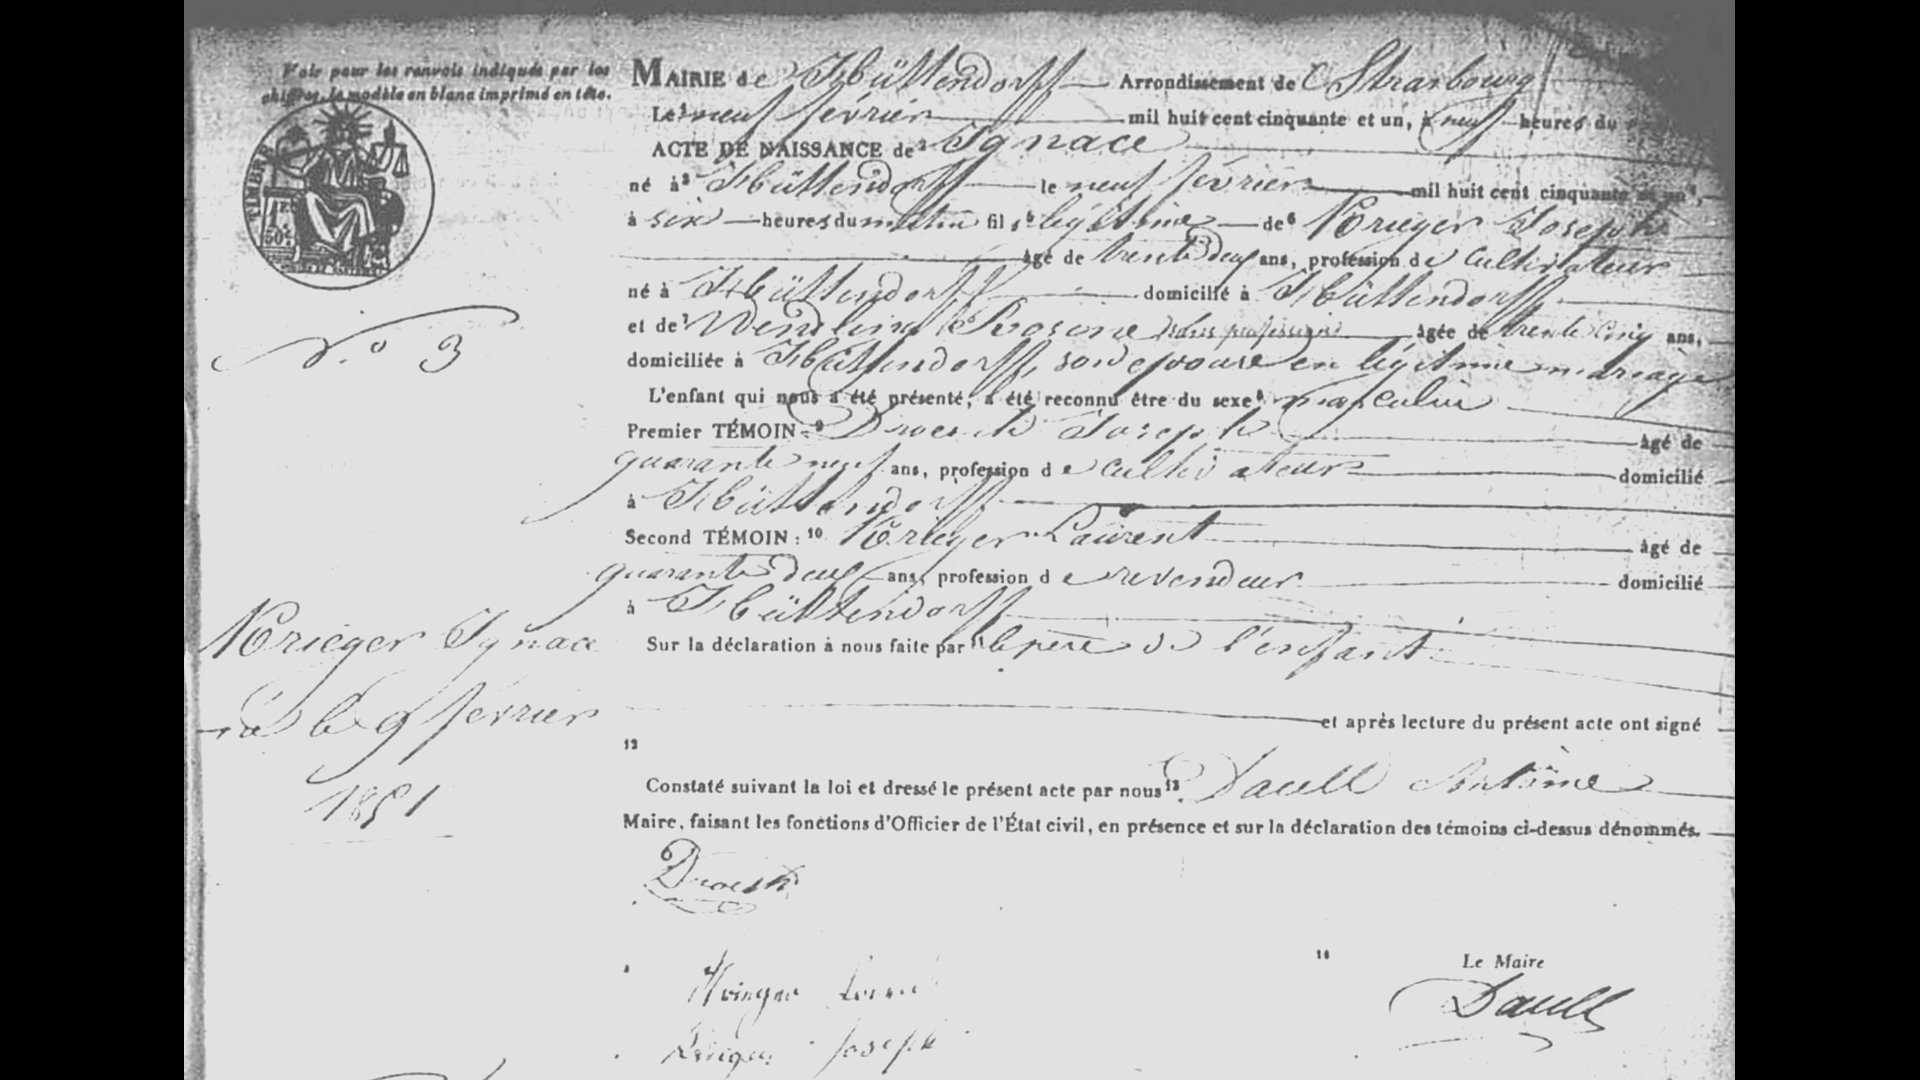 Voir pour les renvois indiqués par les
chiffres, le modèle en blanc imprimé en tête.
TIMBRE
1F.
50c
N.o 3
Krieger Ignace
né le 9 février
1851
MAIRIE de Hüttendorff Arrondissement de Strasbourg
Le 1 neuf février mil huit cent cinquante et un, à neuf heures du
ACTE DE NAISSANCE de 2 Ignace
né à 3 Hüttendorff le neuf février mil huit cent cinquante et un 4,
à six heures du matin fils 5 légitime de 6 Krieger Joseph
âgé de trente deux ans, profession de cultivateur
né à Hüttendorff domicilié à Hüttendorff
et de 7 Wendling Rosine sans profession âgée de trente cinq ans,
domiciliée à Hüttendorff, son épouse en légitime mariage
L'enfant qui nous a été présenté, a été reconnu être du sexe 8 masculin
Premier TÉMOIN : 9 Droesch Joseph âgé de
quarante neuf ans, profession de cultivateur domicilié
à Hüttendorff
Second TÉMOIN : 10 Krieger Laurent âgé de
quarante deux ans, profession de revendeur domicilié
à Hüttendorff
Sur la déclaration à nous faite par 11 le père de l'enfant
et après lecture du présent acte ont signé
12
Constaté suivant la loi et dressé le présent acte par nous 13 Daull Antoine
Maire, faisant les fonctions d'Officier de l'État civil, en présence et sur la déclaration des témoins ci-dessus dénommés.
Droesch
14
Le Maire
Daull
Krieger Joseph